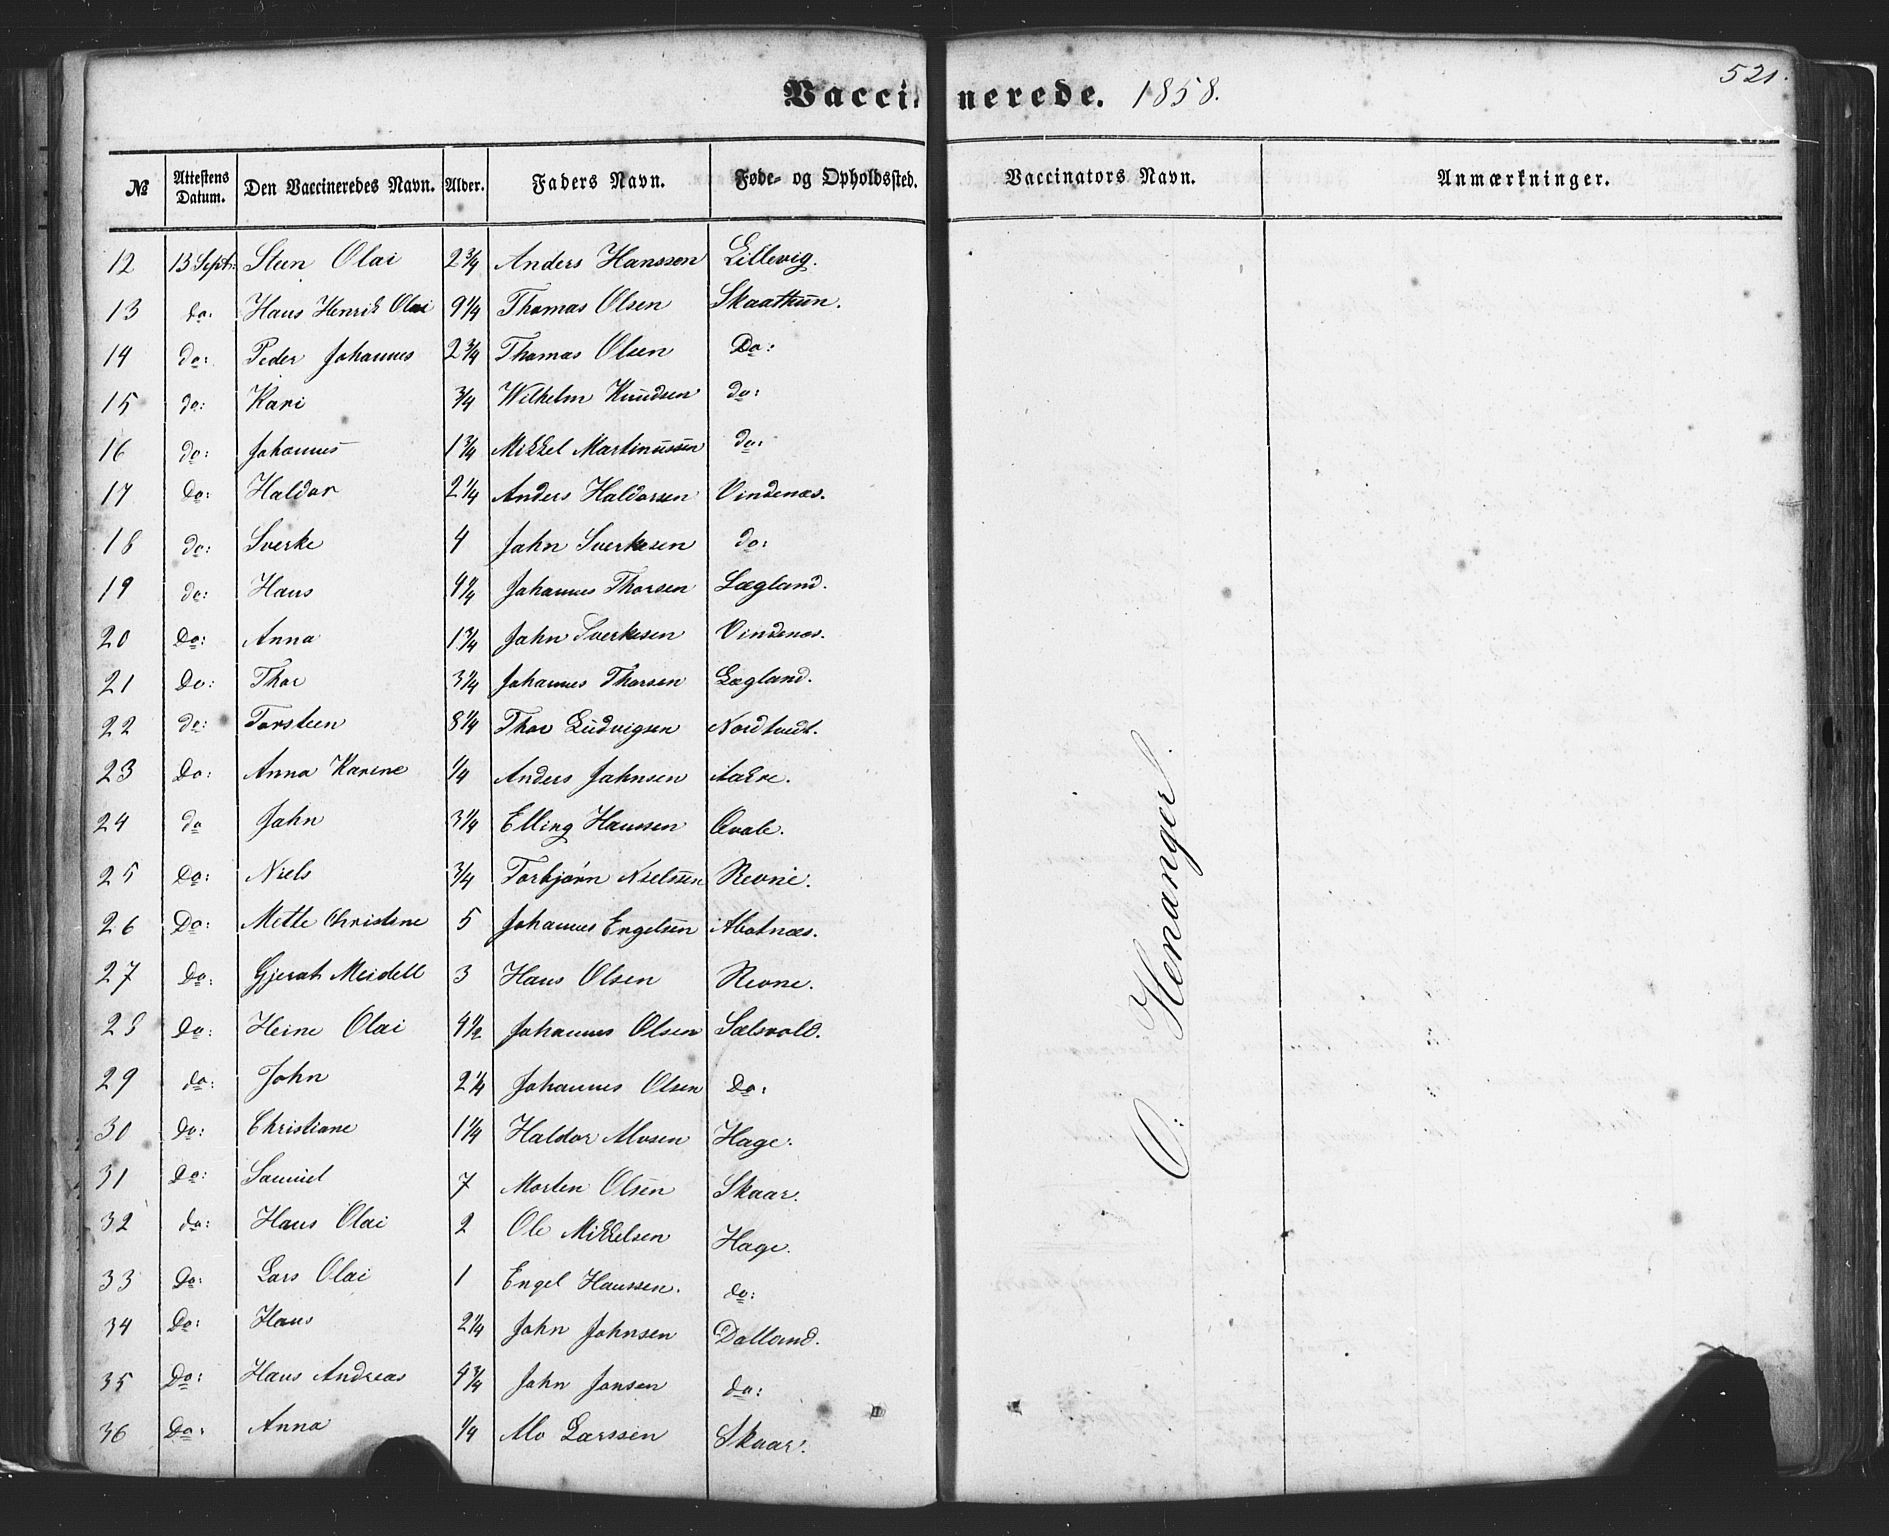 Vaccinerede. 1858.
521.
№ Attestens Datum. Den Vaccineredes Navn. Alder. Faders Navn. Føde- og Opholdssted. Vaccinators Navn. Anmærkninger.
12 13 Septr: Steen Olai 2 3/4 Anders Hanssen Lillevig.
13 do: Hans Henrik Olai 9 1/4 Thomas Olsen Skaathun.
14 do: Peder Johannes 2 3/4 Thomas Olsen Do:
15 do: Kari 3/4 Wilhelm Knudsen do:
16 do: Johannes 1 3/4 Mikkel Martinussen do:
17 Do: Haldor 2 1/4 Anders Haldorsen Vindenæs.
18 do: Sverke 4 John Sverkesen do:
19 do: Hans Johannes Thorsen Lægland.
20 Do: Anna 1 3/4 John Sverkesen Vindenæs.
21 Do: Thor 3 1/4 Johannes Thorsen Lægland.
22 do: Torsteen 8 1/4 Thor Ludvigsen Nordtvedt.
23 Do: Anna Karine 1/4 Anders Johnsen
24 do John 3 1/4 Elling Hanssen
25 Do: Niels 3/4 Torbjørn Nielssen Revne.
26 Do: Mette Christine 5 Johannes Engelsen Abotnæs.
27 Do: Gjerat Meidell 3 Hans Olsen Revne.
28 Do: Heine Olai 4 1/2 Johannes Olsen Sælsvold.
29 do: John 2 1/4 Johannes Olsen Do:
30 do: Christiane 1 1/4 Haldor Monsen Hage.
31 Do: Samuel 7 Morten Olsen Skaar.
32 do: Hans Olai 2 Ole Mikkelsen Hage.
33 Do: Lars Olai 1 Engel Hanssen. do:
34 Do: Hans 2 1/4 John Johnsen Dalland.
35 Do: Hans Andreas 4 3/4 John Jonsen do:
36 Do: Anna 1/4 Mo Larssen Skaar.
O: Henanger.